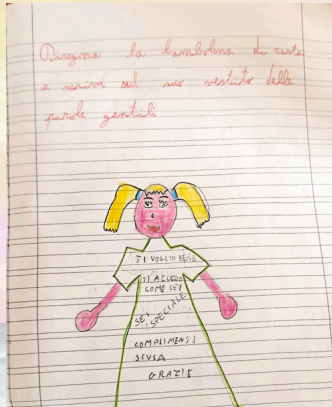 Disegna la bambolina di carta
e scrivi sul suo vestito delle
parole gentili
TI VOGLIO BENE
TI ACCETTO
COME SEI
SEI
SPECIALE
COMPLIMENTI
SCUSA
GRAZIE